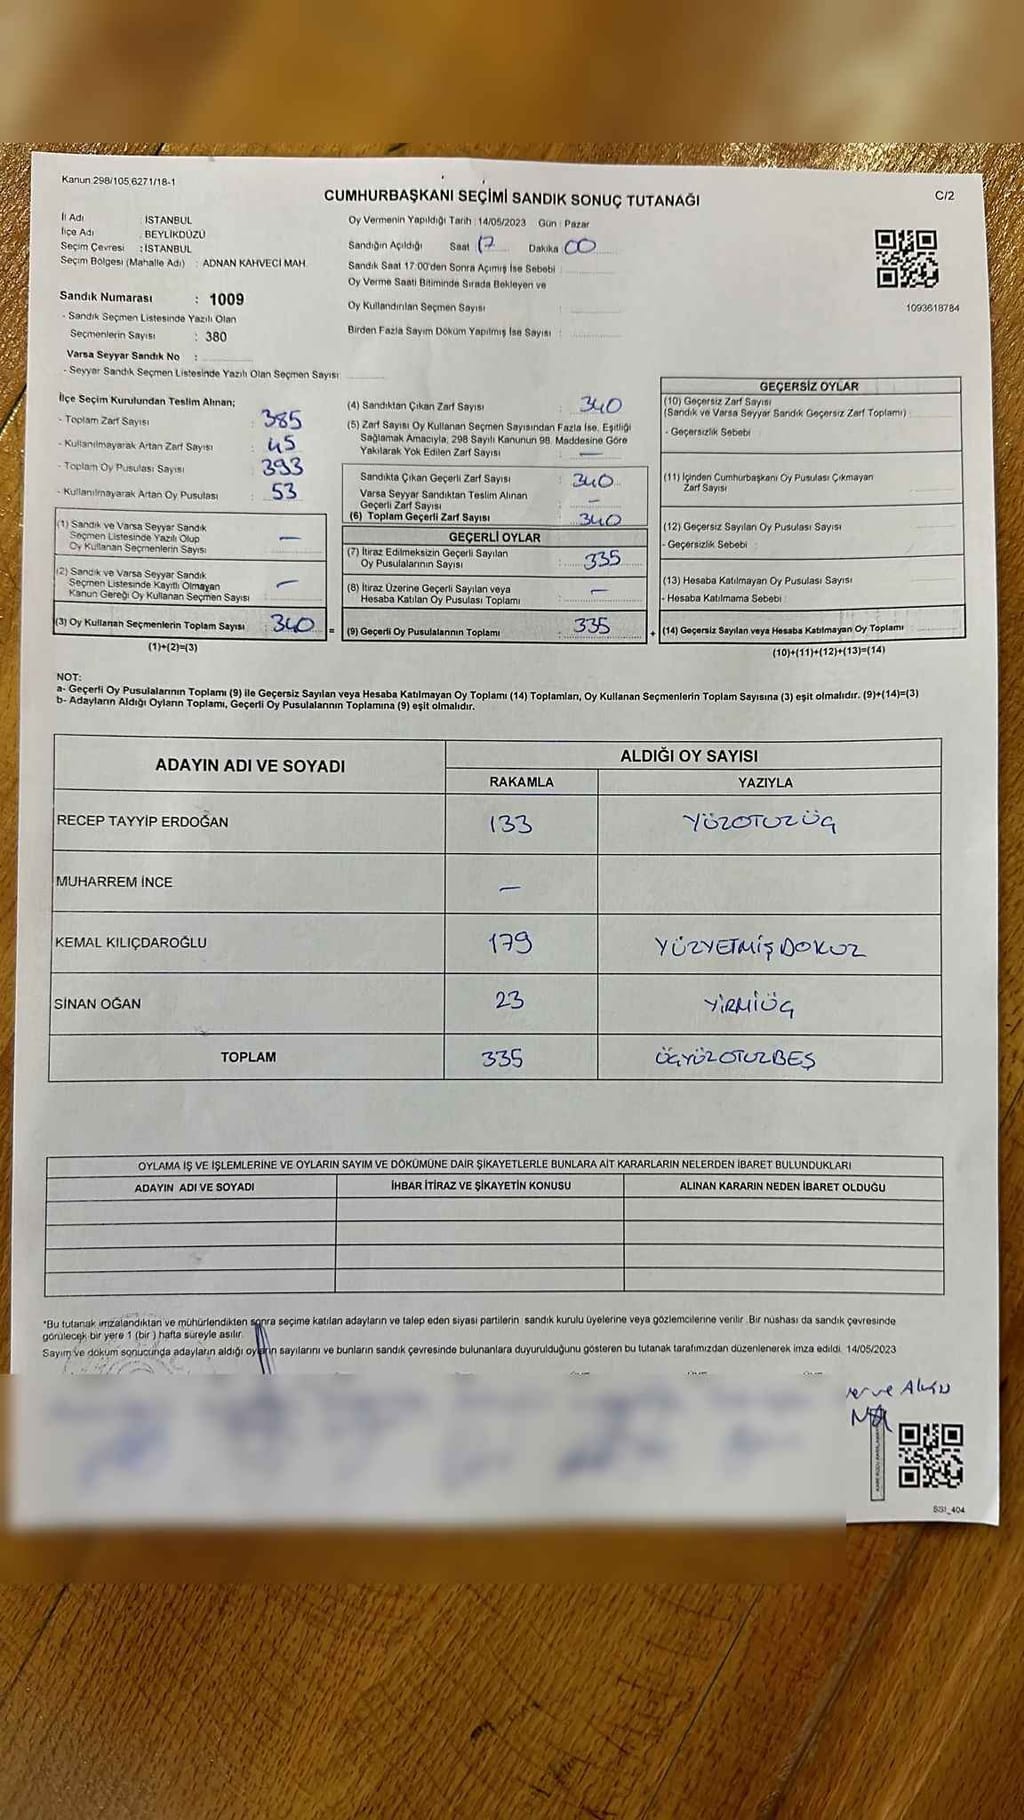 Kanun 298/105,6271/18-1
CUMHURBAŞKANI SEÇİMİ SANDIK SONUÇ TUTANAĞI
C/2
İl Adı : İSTANBUL
İlçe Adı : BEYLİKDÜZÜ
Seçim Çevresi : İSTANBUL
Seçim Bölgesi (Mahalle Adı) : ADNAN KAHVECİ MAH.
Oy Vermenin Yapıldığı Tarih : 14/05/2023 Gün : Pazar
Sandığın Açıldığı Saat 17 Dakika 00
Sandık Saat 17:00'den Sonra Açımış İse Sebebi :
Oy Verme Saati Bitiminde Sırada Bekleyen ve
Oy Kullandırılan Seçmen Sayısı :
Birden Fazla Sayım Döküm Yapılmış İse Sayısı :
1093618784
Sandık Numarası : 1009
- Sandık Seçmen Listesinde Yazılı Olan
Seçmenlerin Sayısı : 380
Varsa Seyyar Sandık No :
- Seyyar Sandık Seçmen Listesinde Yazılı Olan Seçmen Sayısı:
İlçe Seçim Kurulundan Teslim Alınan;
- Toplam Zarf Sayısı : 385
- Kullanılmayarak Artan Zarf Sayısı : 45
- Toplam Oy Pusulası Sayısı : 393
- Kullanılmayarak Artan Oy Pusulası : 53
(1) Sandık ve Varsa Seyyar Sandık
Seçmen Listesinde Yazılı Olup
Oy Kullanan Seçmenlerin Sayısı : —
(2) Sandık ve Varsa Seyyar Sandık
Seçmen Listesinde Kayıtlı Olmayan
Kanun Gereği Oy Kullanan Seçmen Sayısı : —
(3) Oy Kullanan Seçmenlerin Toplam Sayısı : 340 =
(1)+(2)=(3)
(4) Sandıktan Çıkan Zarf Sayısı : 340
(5) Zarf Sayısı Oy Kullanan Seçmen Sayısından Fazla İse, Eşitliği
Sağlamak Amacıyla, 298 Sayılı Kanunun 98. Maddesine Göre
Yakılarak Yok Edilen Zarf Sayısı : —
Sandıkta Çıkan Geçerli Zarf Sayısı : 340
Varsa Seyyar Sandıktan Teslim Alınan
Geçerli Zarf Sayısı : —
(6) Toplam Geçerli Zarf Sayısı : 340
GEÇERLİ OYLAR
(7) İtiraz Edilmeksizin Geçerli Sayılan
Oy Pusulalarının Sayısı : 335
(8) İtiraz Üzerine Geçerli Sayılan veya
Hesaba Katılan Oy Pusulası Toplamı : —
(9) Geçerli Oy Pusulalarının Toplamı : 335 +
GEÇERSİZ OYLAR
(10) Geçersiz Zarf Sayısı
(Sandık ve Varsa Seyyar Sandık Geçersiz Zarf Toplamı) :
- Geçersizlik Sebebi :
(11) İçinden Cumhurbaşkanı Oy Pusulası Çıkmayan
Zarf Sayısı :
(12) Geçersiz Sayılan Oy Pusulası Sayısı :
- Geçersizlik Sebebi :
(13) Hesaba Katılmayan Oy Pusulası Sayısı :
- Hesaba Katılmama Sebebi :
(14) Geçersiz Sayılan veya Hesaba Katılmayan Oy Toplamı :
(10)+(11)+(12)+(13)=(14)
NOT:
a- Geçerli Oy Pusulalarının Toplamı (9) ile Geçersiz Sayılan veya Hesaba Katılmayan Oy Toplamı (14) Toplamları, Oy Kullanan Seçmenlerin Toplam Sayısına (3) eşit olmalıdır. (9)+(14)=(3)
b- Adayların Aldığı Oyların Toplamı, Geçerli Oy Pusulalarının Toplamına (9) eşit olmalıdır.
ADAYIN ADI VE SOYADI
ALDIĞI OY SAYISI
RAKAMLA YAZIYLA
RECEP TAYYİP ERDOĞAN 133 YÜZOTUZÜÇ
MUHARREM İNCE —
KEMAL KILIÇDAROĞLU 179 YÜZYETMİŞDOKUZ
SİNAN OĞAN 23 YİRMİÜÇ
TOPLAM 335 ÜÇYÜZOTUZBEŞ
OYLAMA İŞ VE İŞLEMLERİNE VE OYLARIN SAYIM VE DÖKÜMÜNE DAİR ŞİKAYETLERLE BUNLARA AİT KARARLARIN NELERDEN İBARET BULUNDUKLARI
ADAYIN ADI VE SOYADI İHBAR İTİRAZ VE ŞİKAYETİN KONUSU ALINAN KARARIN NEDEN İBARET OLDUĞU
*Bu tutanak imzalandıktan ve mühürlendikten sonra seçime katılan adayların ve talep eden siyasi partilerin sandık kurulu üyelerine veya gözlemcilerine verilir. Bir nüshası da sandık çevresinde
görülecek bir yere 1 (bir) hafta süreyle asılır.
Sayım ve döküm sonucunda adayların aldığı oyların sayılarını ve bunların sandık çevresinde bulunanlara duyurulduğunu gösteren bu tutanak tarafımızdan düzenlenerek imza edildi. 14/05/2023
SSI_404